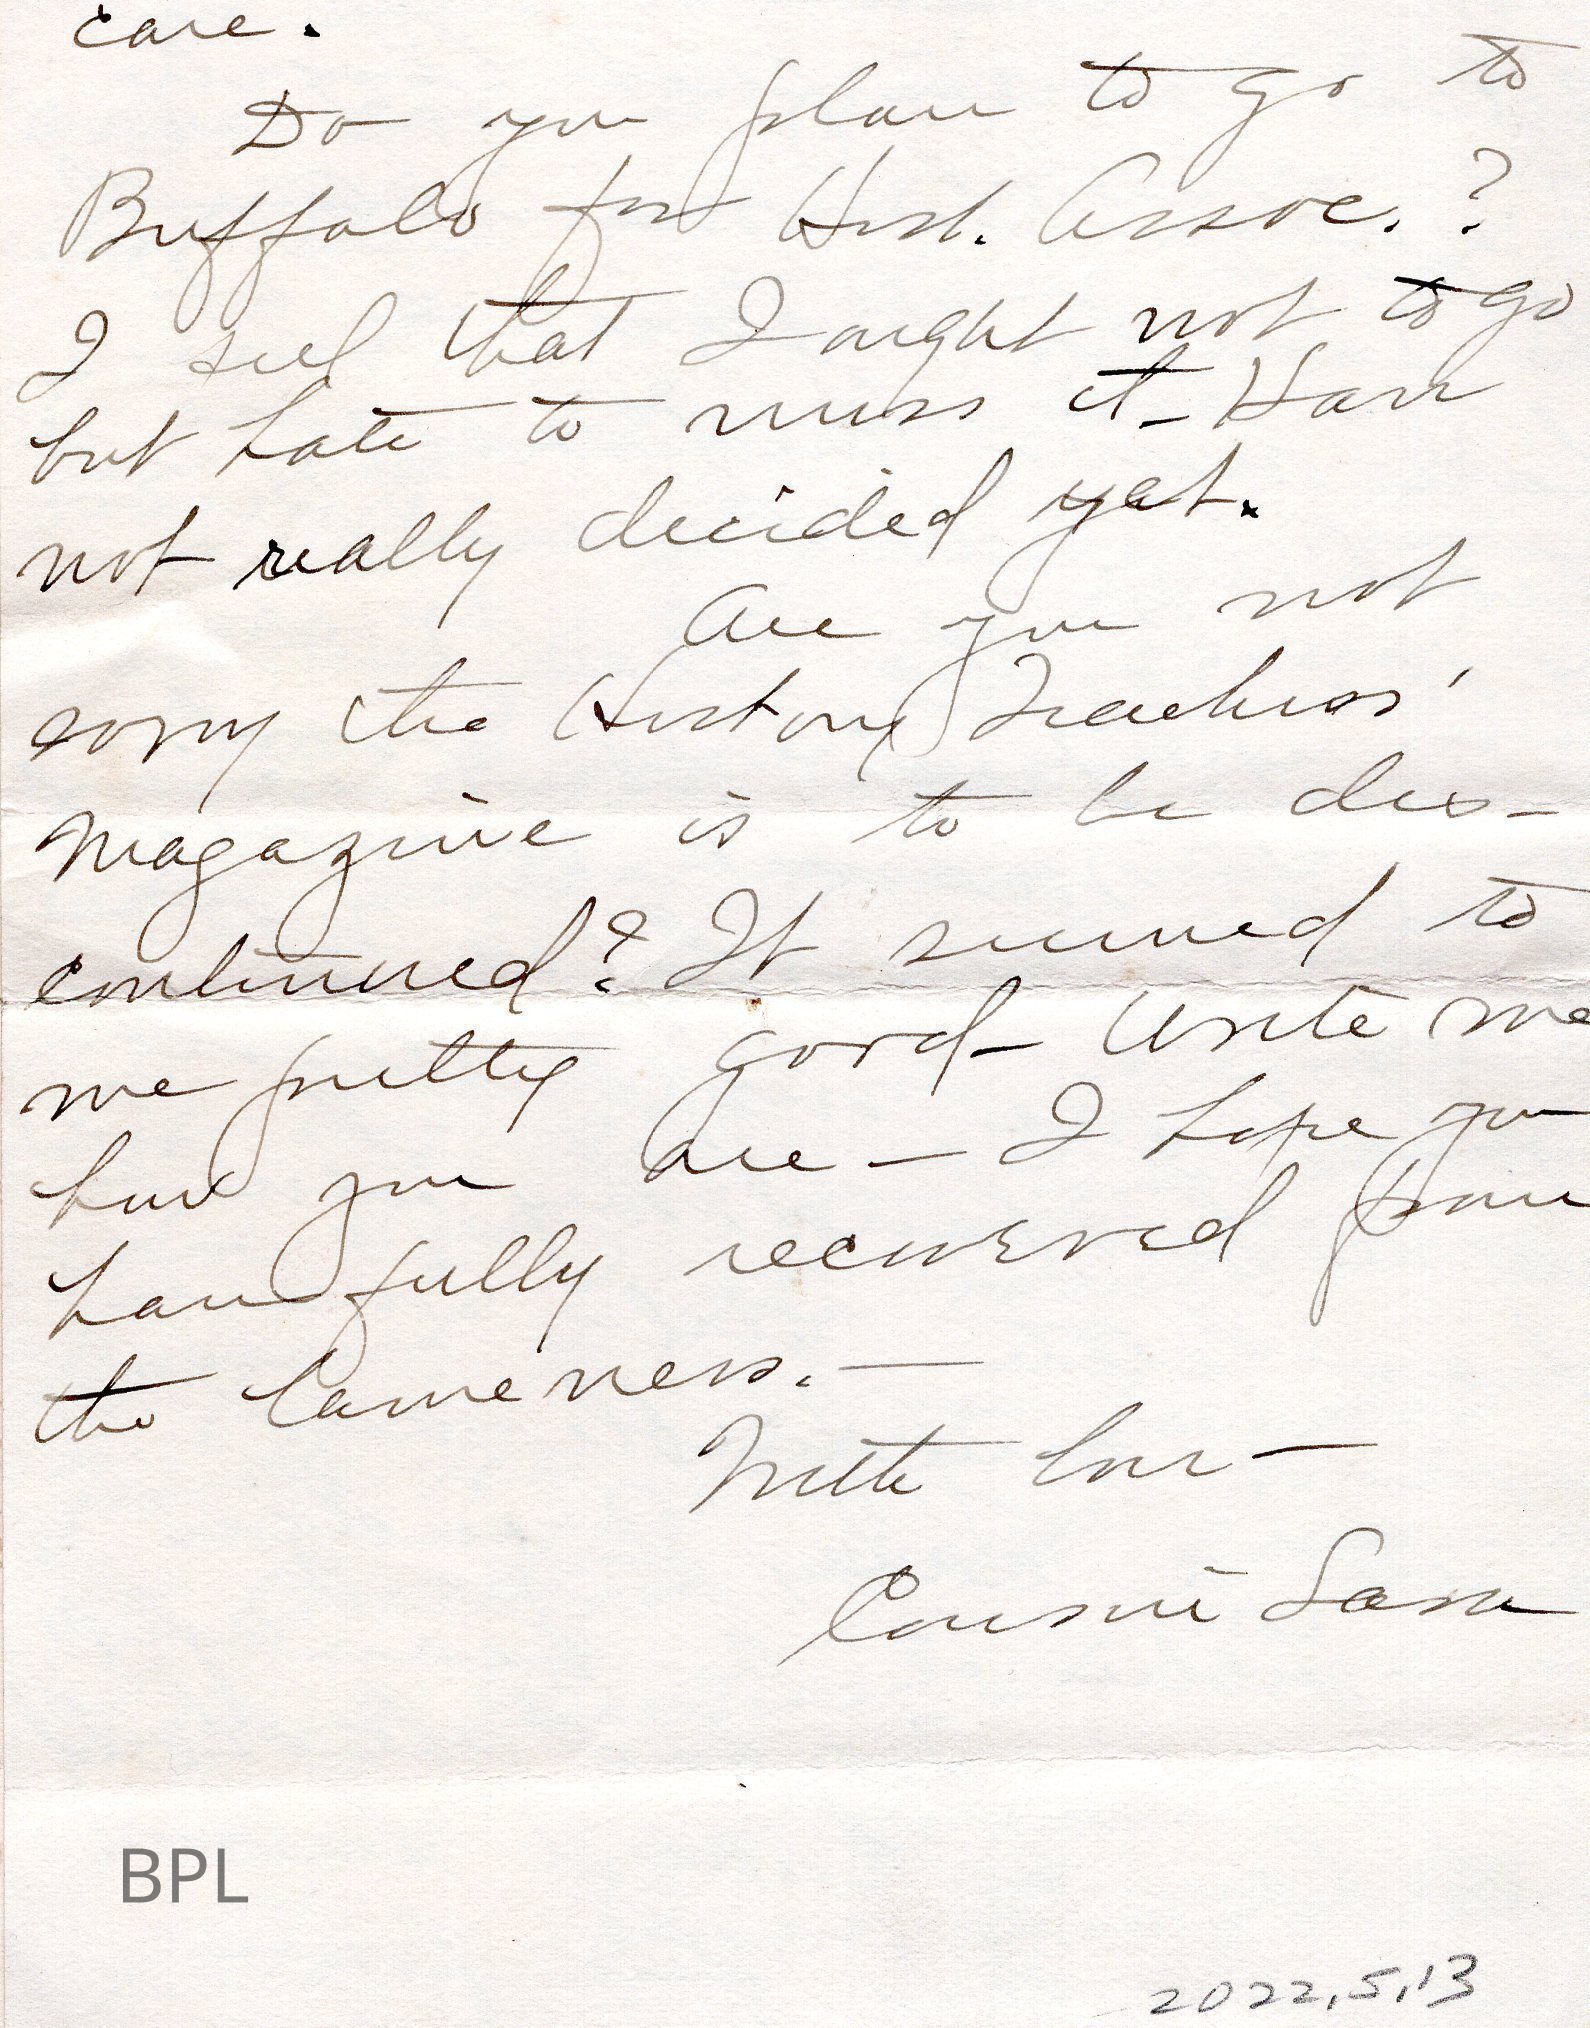 care.
Do you plan to go to
Buffalo for Hist. Assoc.?
I feel that I ought not to go
but hate to miss it - Have
not really decided yet.
Are you not
sorry the History Teachers'
Magazine is to be dis-
continued? It seemed to
me pretty good - Write me
how you are - I hope you
have fully recovered from
the lameness. —
With love —
Cousin Sara
BPL
2022.5.13